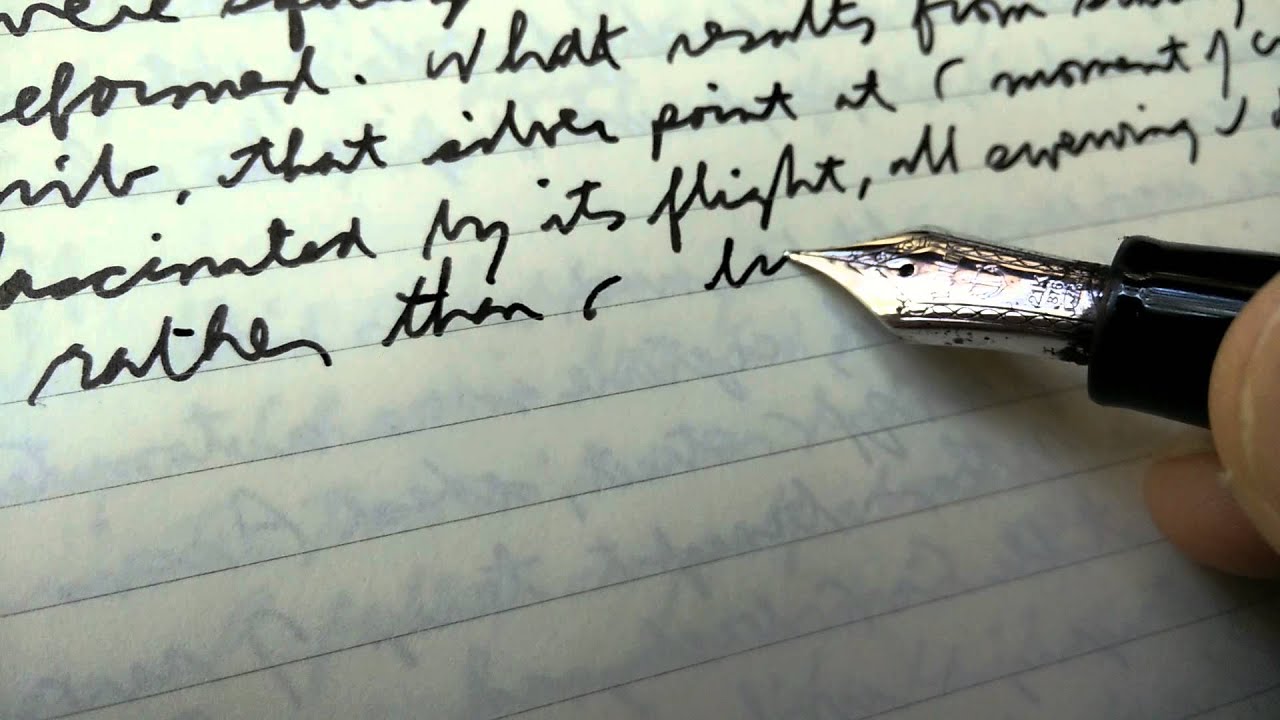 were
eformed. What results from
nib, that silver point at ( moment
fascinated by its flight, all evening
rather than (
21K